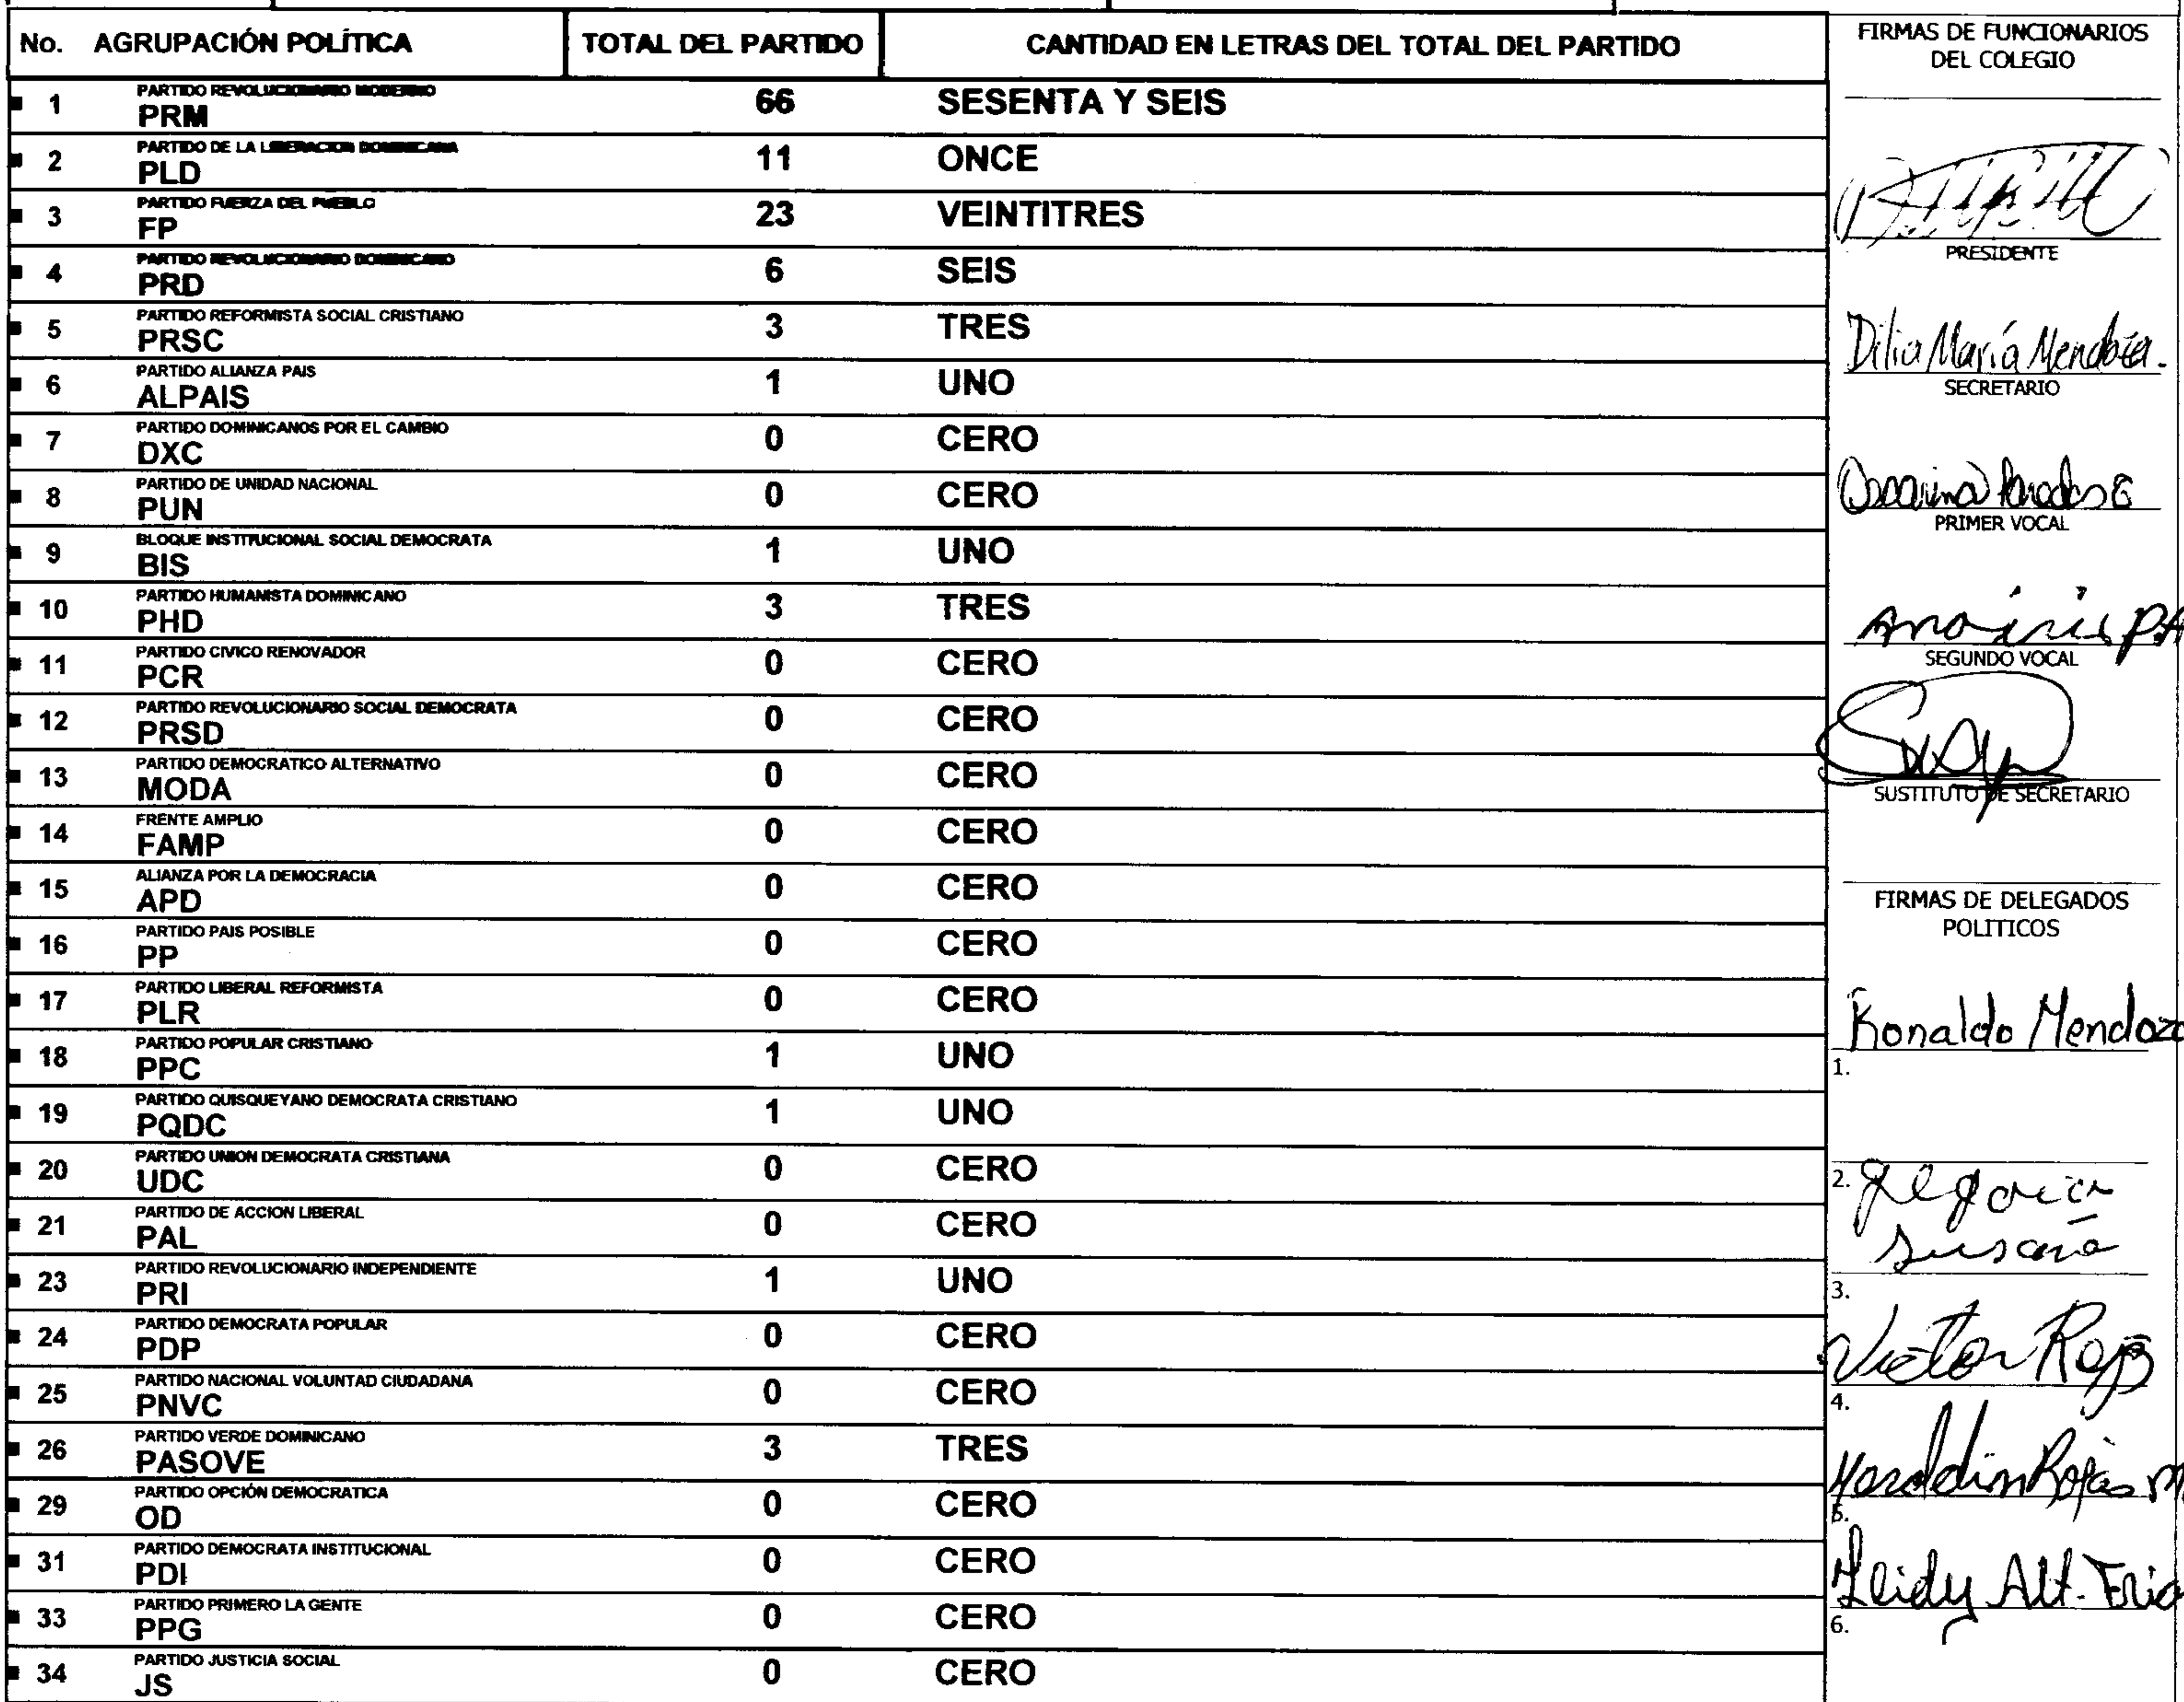 No. AGRUPACIÓN POLÍTICA TOTAL DEL PARTIDO CANTIDAD EN LETRAS DEL TOTAL DEL PARTIDO
PARTIDO REVOLUCIONARIO MODERNO
1 PRM 66 SESENTA Y SEIS
PARTIDO DE LA LIBERACION DOMINICANA
2 PLD 11 ONCE
PARTIDO FUERZA DEL PUEBLO
3 FP 23 VEINTITRES
PARTIDO REVOLUCIONARIO DOMINICANO
4 PRD 6 SEIS
PARTIDO REFORMISTA SOCIAL CRISTIANO
5 PRSC 3 TRES
PARTIDO ALIANZA PAIS
6 ALPAIS 1 UNO
PARTIDO DOMINICANOS POR EL CAMBIO
7 DXC 0 CERO
PARTIDO DE UNIDAD NACIONAL
8 PUN 0 CERO
BLOQUE INSTITUCIONAL SOCIAL DEMOCRATA
9 BIS 1 UNO
PARTIDO HUMANISTA DOMINICANO
10 PHD 3 TRES
PARTIDO CIVICO RENOVADOR
11 PCR 0 CERO
PARTIDO REVOLUCIONARIO SOCIAL DEMOCRATA
12 PRSD 0 CERO
PARTIDO DEMOCRATICO ALTERNATIVO
13 MODA 0 CERO
FRENTE AMPLIO
14 FAMP 0 CERO
ALIANZA POR LA DEMOCRACIA
15 APD 0 CERO
PARTIDO PAIS POSIBLE
16 PP 0 CERO
PARTIDO LIBERAL REFORMISTA
17 PLR 0 CERO
PARTIDO POPULAR CRISTIANO
18 PPC 1 UNO
PARTIDO QUISQUEYANO DEMOCRATA CRISTIANO
19 PQDC 1 UNO
PARTIDO UNION DEMOCRATA CRISTIANA
20 UDC 0 CERO
PARTIDO DE ACCION LIBERAL
21 PAL 0 CERO
PARTIDO REVOLUCIONARIO INDEPENDIENTE
23 PRI 1 UNO
PARTIDO DEMOCRATA POPULAR
24 PDP 0 CERO
PARTIDO NACIONAL VOLUNTAD CIUDADANA
25 PNVC 0 CERO
PARTIDO VERDE DOMINICANO
26 PASOVE 3 TRES
PARTIDO OPCIÓN DEMOCRATICA
29 OD 0 CERO
PARTIDO DEMOCRATA INSTITUCIONAL
31 PDI 0 CERO
PARTIDO PRIMERO LA GENTE
33 PPG 0 CERO
PARTIDO JUSTICIA SOCIAL
34 JS 0 CERO
FIRMAS DE FUNCIONARIOS
DEL COLEGIO
PRESIDENTE
Dilia María Mendoza.
SECRETARIO
PRIMER VOCAL
SEGUNDO VOCAL
SUSTITUTO DE SECRETARIO
FIRMAS DE DELEGADOS
POLITICOS
Ronaldo Mendoza
1.
2.
Susana
3.
Victor
4.
Rojas M
5.
Leidy Alt.
6.